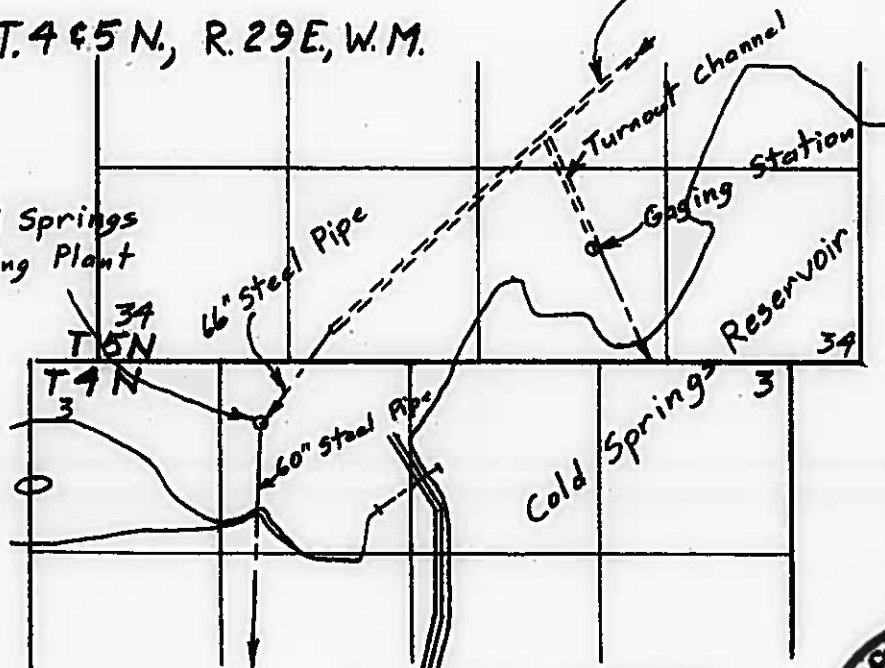 T. 4 & 5 N., R. 29 E., W. M.
Turnout Channel
Gaging Station
Springs
Plant
66" Steel Pipe
34
T 5 N
T 4 N
3
60" Steel Pipe
Cold Springs Reservoir
34
3